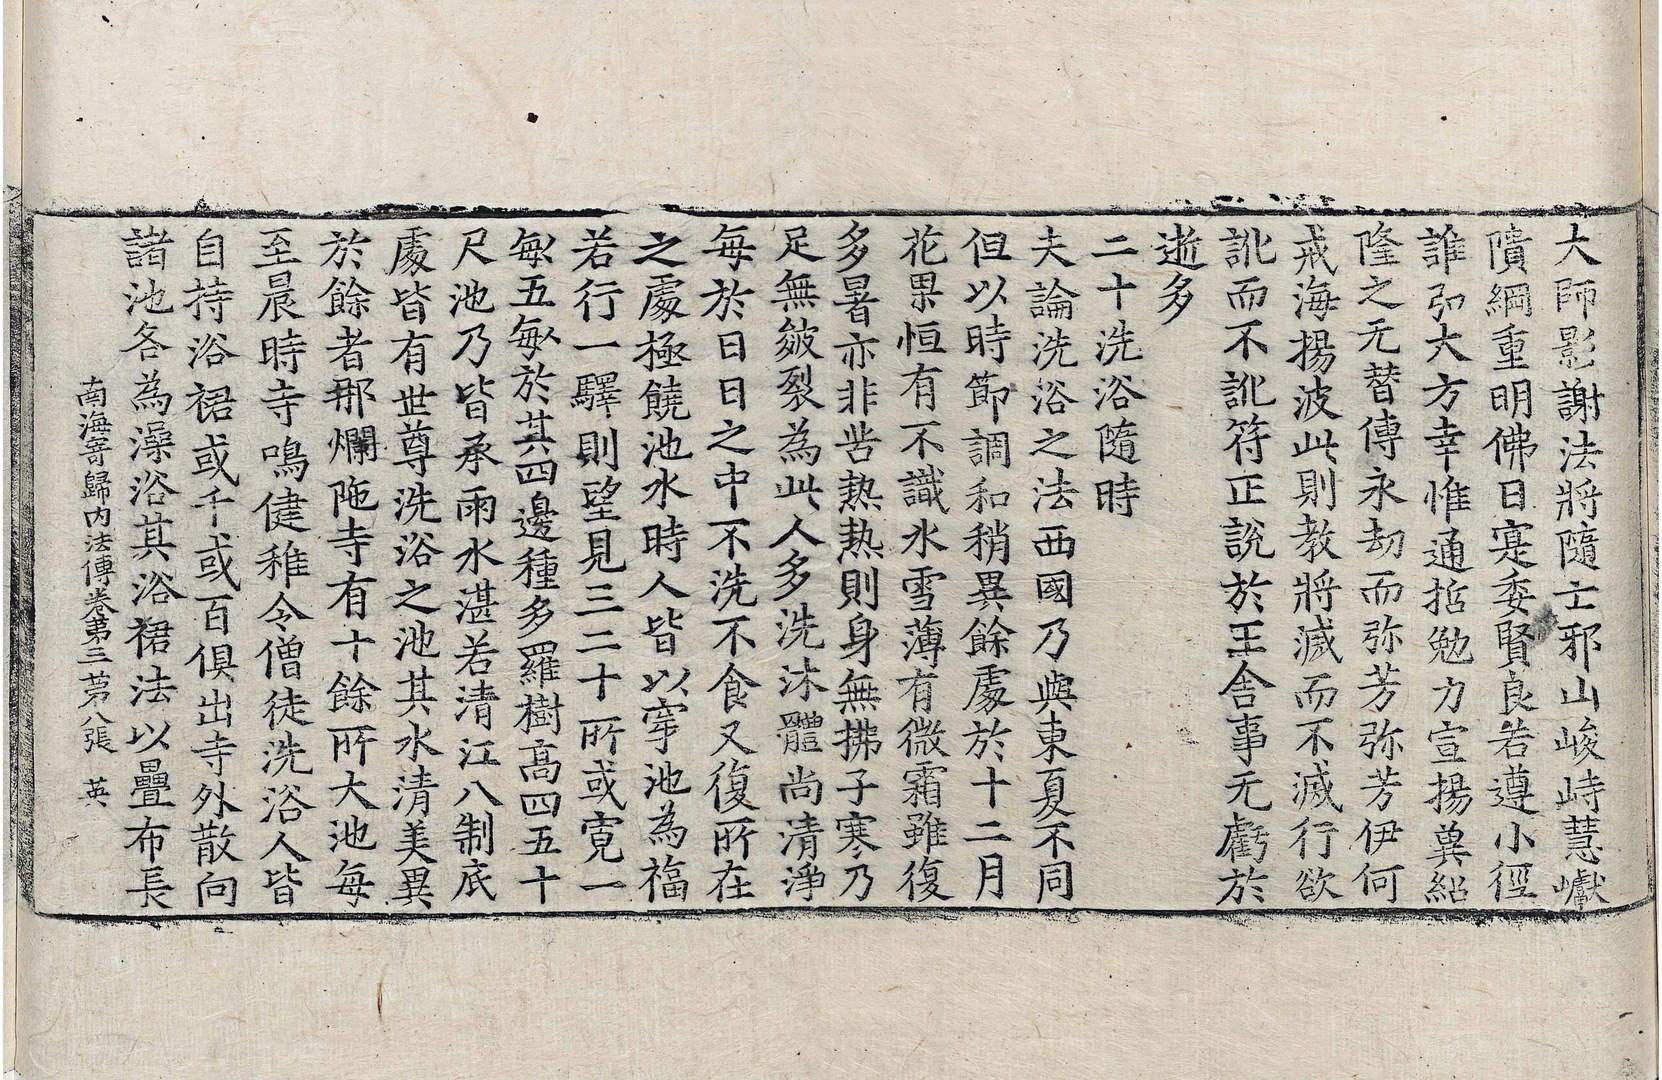 大師影謝法將隨亡邪山峻峙慧巘
隤綱重明佛日寔委賢良若遵小徑
誰弘大方幸惟通哲勉力宣揚冀紹
隆之无替傳永劫而弥芳弥芳伊何
戒海揚波此則教將滅而不滅行欲
訛而不訛符正說於王舍事无虧於
逝多
二十洗浴隨時
夫論洗浴之法西國乃與東夏不同
但以時節調和稍異餘處於十二月
花果恒有不識氷雪薄有微霜雖復
多暑亦非苦熱熱則身無拂子寒乃
足無皴裂為此人多洗沐體尚清淨
每於日日之中不洗不食又復所在
之處極饒池水時人皆以穿池為福
若行一驛則望見三二十所或寬一
畝五畝於其四邊種多羅樹高四五十
尺池乃皆承雨水湛若清江八制底
處皆有世尊洗浴之池其水清美異
於餘者那爛陁寺有十餘所大池每
至晨時寺鳴健稚令僧徒洗浴人皆
自持浴裙或千或百俱出寺外散向
諸池各為澡浴其浴裙法以疊布長
南海寄歸內法傳卷第三 第八張 英